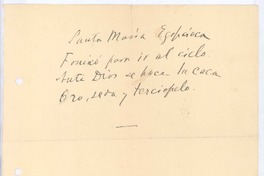 Santa María Egipciaca
para ir al cielo
Ante Dios se hace la caca
Oro, seda y terciopelo.